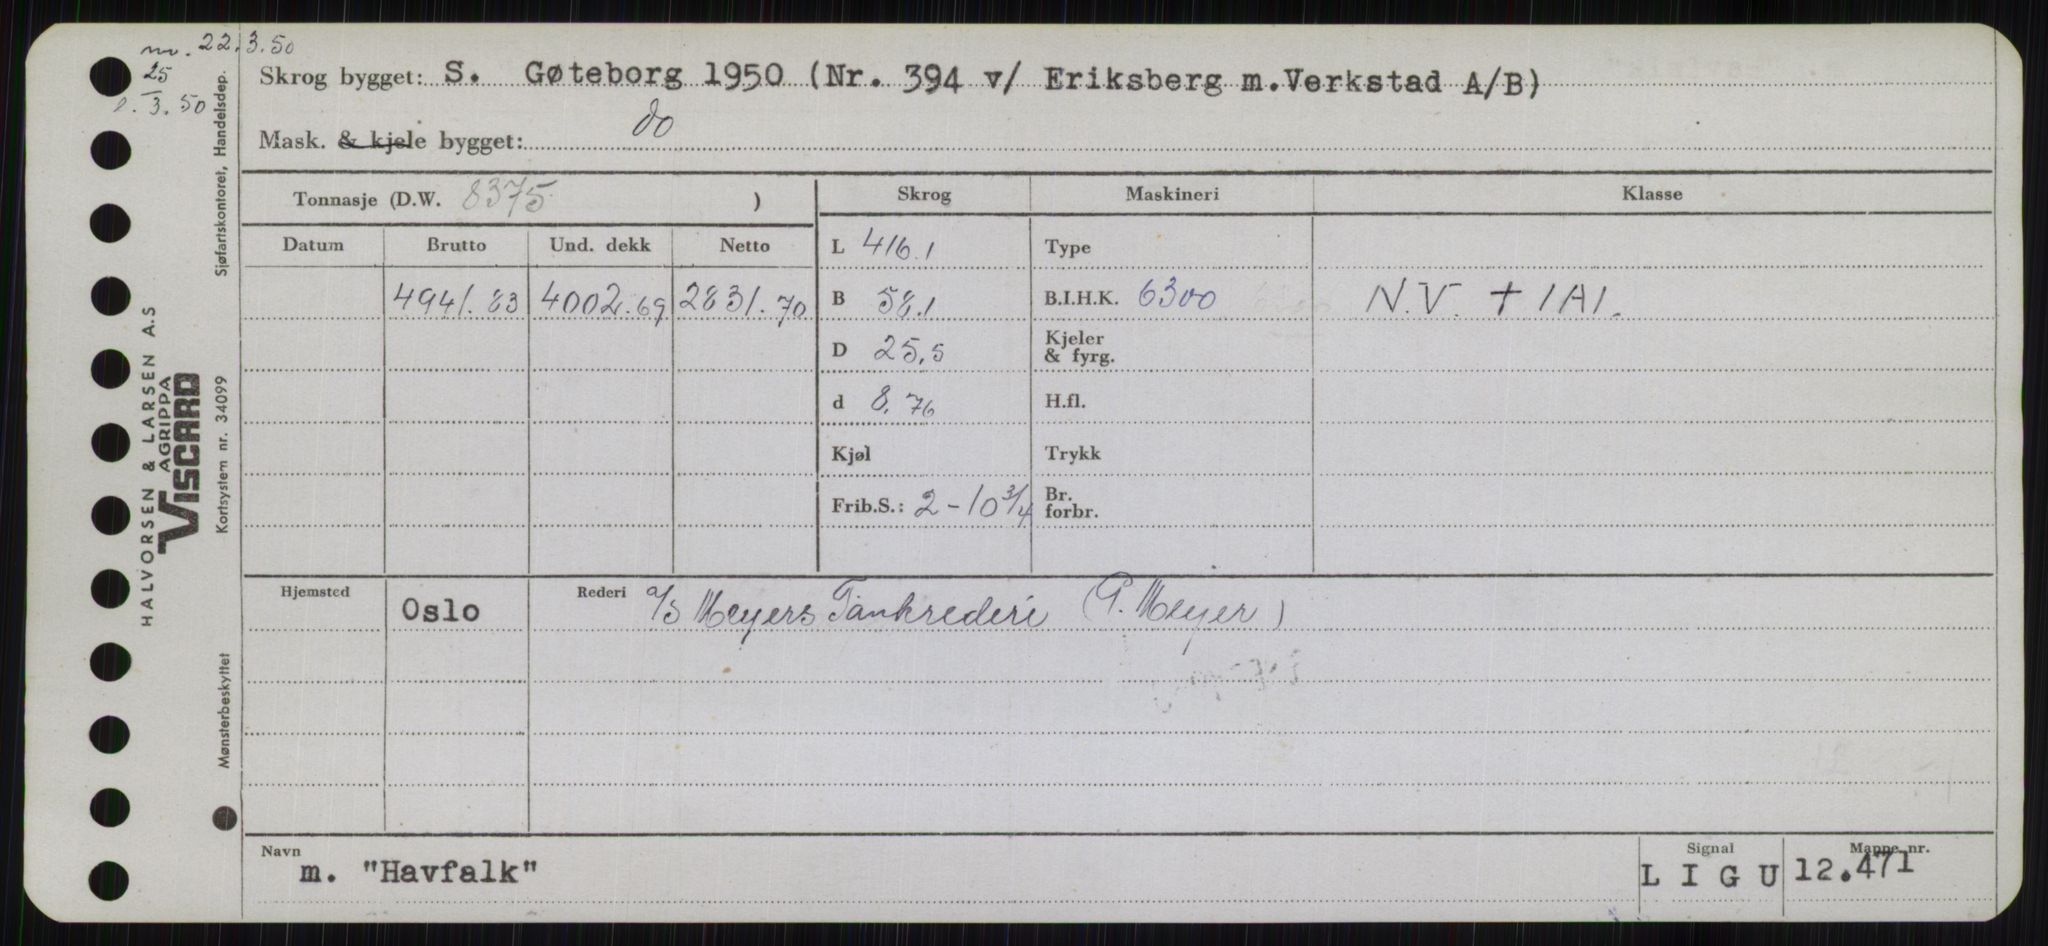 nv. 22.3.50
25
3.50
Skrog bygget: S. Gøteborg 1950 (Nr. 394 v/ Eriksberg m.Verkstad A/B)
Mask. & kjele bygget: do
Tonnasje (D.W. 8375 )
Datum Brutto Und. dekk Netto
4941.83 4002.69 2831.70
Skrog Maskineri Klasse
L 416.1 Type
B 58.1 B.I.H.K. 6300 N.V. + 1A1.
D 25.5 Kjeler & fyrg.
d 8.76 H.fl.
Kjøl Trykk
Frib.S.: 2-10 3/4 Br. forbr.
Hjemsted Oslo Rederi a/s Meyers Tankrederi (P. Meyer)
Navn m. "Havfalk"
Signal LIGU
Mappe nr. 12.471
Sjøfartskontoret, Handelsdep.
HALVORSEN & LARSEN A.S
AGRIPPA
VISCARD
Kortsystem nr. 34099
Mønsterbeskyttet